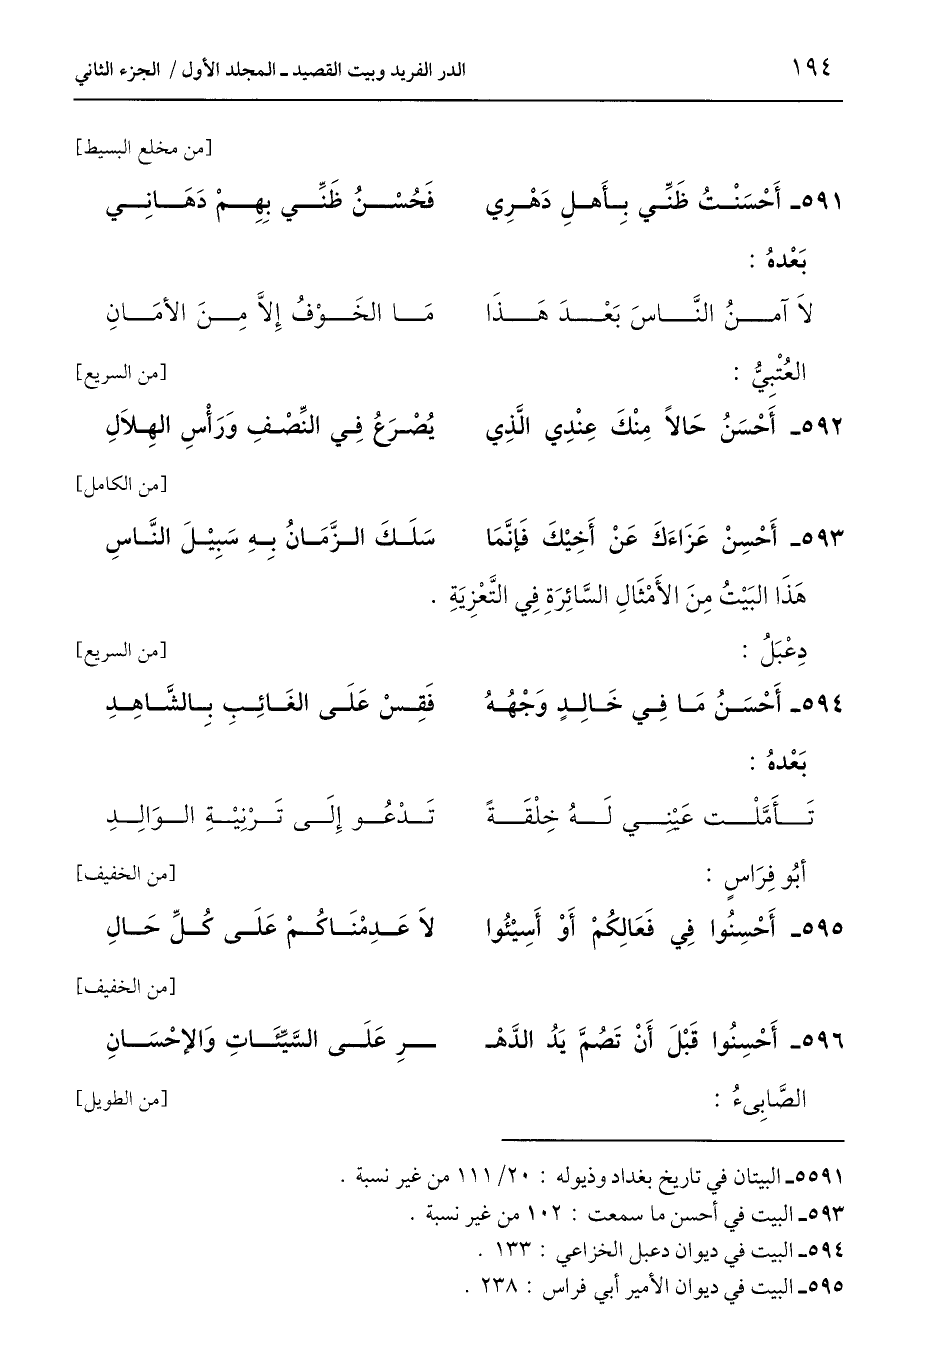 ١٩٤ الدر الفريد وبيت القصيد ـ المجلد الأول / الجزء الثاني
[من مخلع البسيط]
٥٩١ـ أَحْسَنْتُ ظَنِّي بِأَهلِ دَهْرِي فَحُسْنُ ظَنِّي بِهِمْ دَهَانِي
بَعْدهُ :
لاَ آمنُ النَّاسَ بَعْدَ هَذَا مَا الخَوْفُ إِلاَّ مِنَ الأَمَانِ
العُتْبِيُّ : [من السريع]
٥٩٢ـ أَحْسَنُ حَالاً مِنْكَ عِنْدِي الَّذِي يُصْرَعُ فِي النِّصْفِ وَرَأْسِ الهِلاَلِ
[من الكامل]
٥٩٣ـ أَحْسِنْ عَزَاءَكَ عَنْ أَخِيْكَ فَإِنَّمَا سَلَكَ الزَّمَانُ بِهِ سَبِيْلَ النَّاسِ
هَذَا البَيْتُ مِنَ الأَمْثَالِ السَّائِرَةِ فِي التَّعْزِيَةِ .
دِعْبَلُ : [من السريع]
٥٩٤ـ أَحْسَنُ مَا فِي خَالِدٍ وَجْهُهُ فَقِسْ عَلَى الغَائِبِ بِالشَّاهِدِ
بَعْدهُ :
تَأَمَّلْت عَيْنِي لَهُ خِلْقَةً تَدْعُو إِلَى تَزْنِيْةِ الوَالِدِ
أَبُو فِرَاسٍ : [من الخفيف]
٥٩٥ـ أَحْسِنُوا فِي فَعَالِكُمْ أَوْ أَسِيْئُوا لاَ عَدِمْنَاكُمْ عَلَى كُلِّ حَالِ
[من الخفيف]
٥٩٦ـ أَحْسِنُوا قَبْلَ أَنْ تَصُمَّ يَدُ الدَّهْـ ـرِ عَلَى السَّيِّئَاتِ وَالإحْسَانِ
الصَّابِىءُ : [من الطويل]
٥٥٩١ـ البيتان في تاريخ بغداد وذيوله : ٢٠/ ١١١ من غير نسبة .
٥٩٣ـ البيت في أحسن ما سمعت : ١٠٢ من غير نسبة .
٥٩٤ـ البيت في ديوان دعبل الخزاعي : ١٣٣ .
٥٩٥ـ البيت في ديوان الأمير أبي فراس : ٢٣٨ .